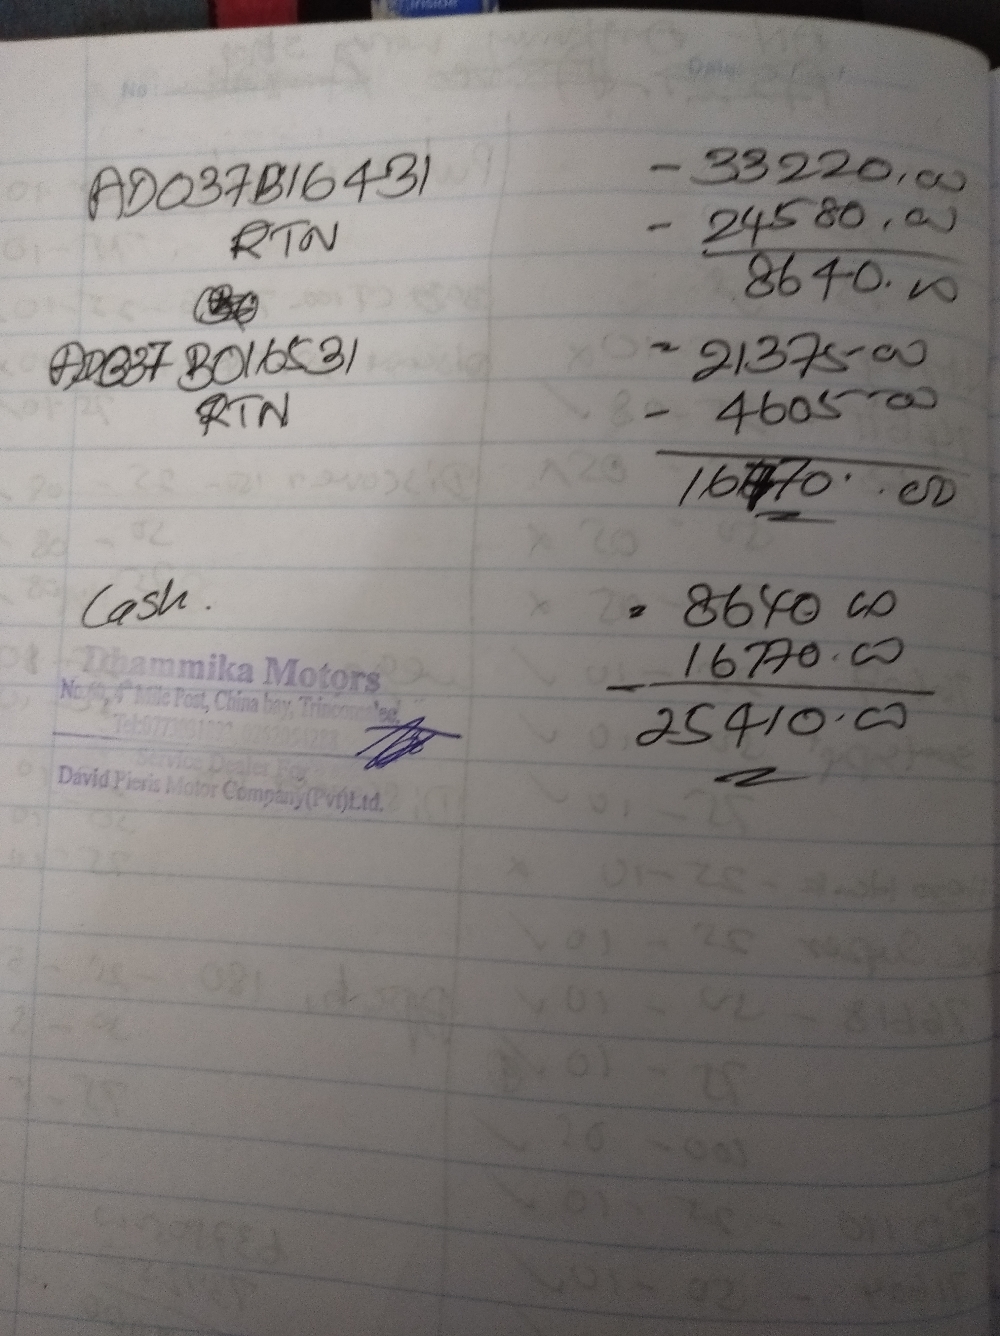 inside
No
Date
AD037B16431 - 33220.00
RTN - 24580.00
8640.00
AD037B016531 - 21375-00
RTN - 4605-00
16770.00
Cash. = 8640 00
16770.00
25410.00
Dhammika Motors
Mile Post, China bay,
Service Dealer For
David Pieris Motor Company(Pvt)Ltd.